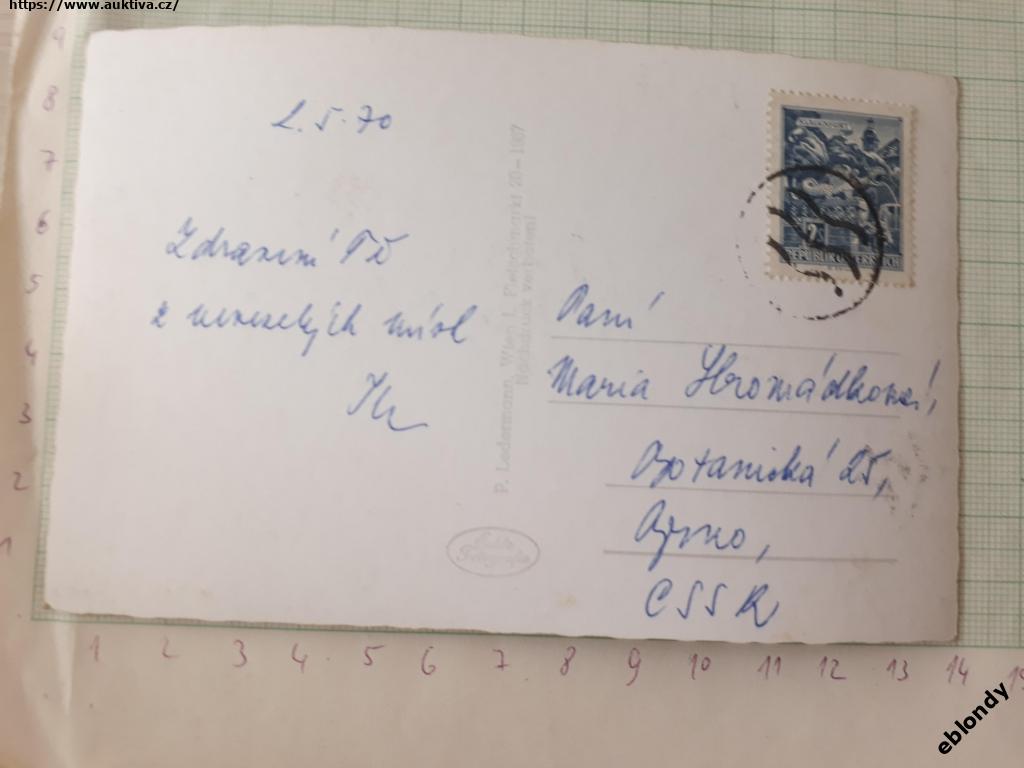 https://www.auktiva.cz/
9
8
7
6
5
4
3
2
1
2. 5. 70
Zdraví Tě
z veselých míst
P. Ledermann, Wien I, Fleischmarkt 20 – 1967
Nachdruck verboten!
KLAGENFURT
2
REPUBLIK ÖSTERREICH
Paní
Maria Hromádková,
Botanická 25,
Brno,
ČSSR
1 2 3 4 5 6 7 8 9 10 11 12 13 14 15
eblondy